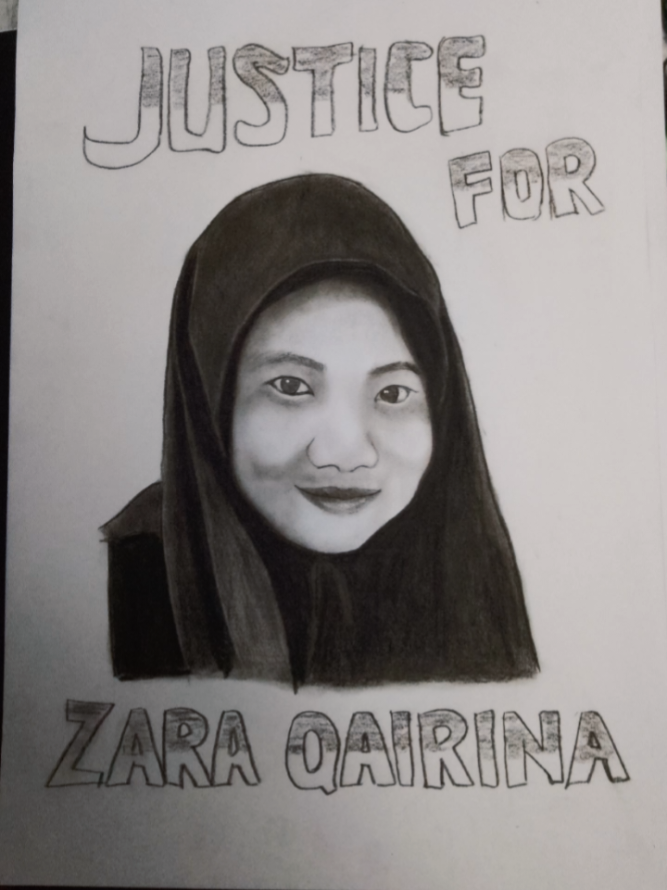 JUSTICE
FOR
ZARA QAIRINA